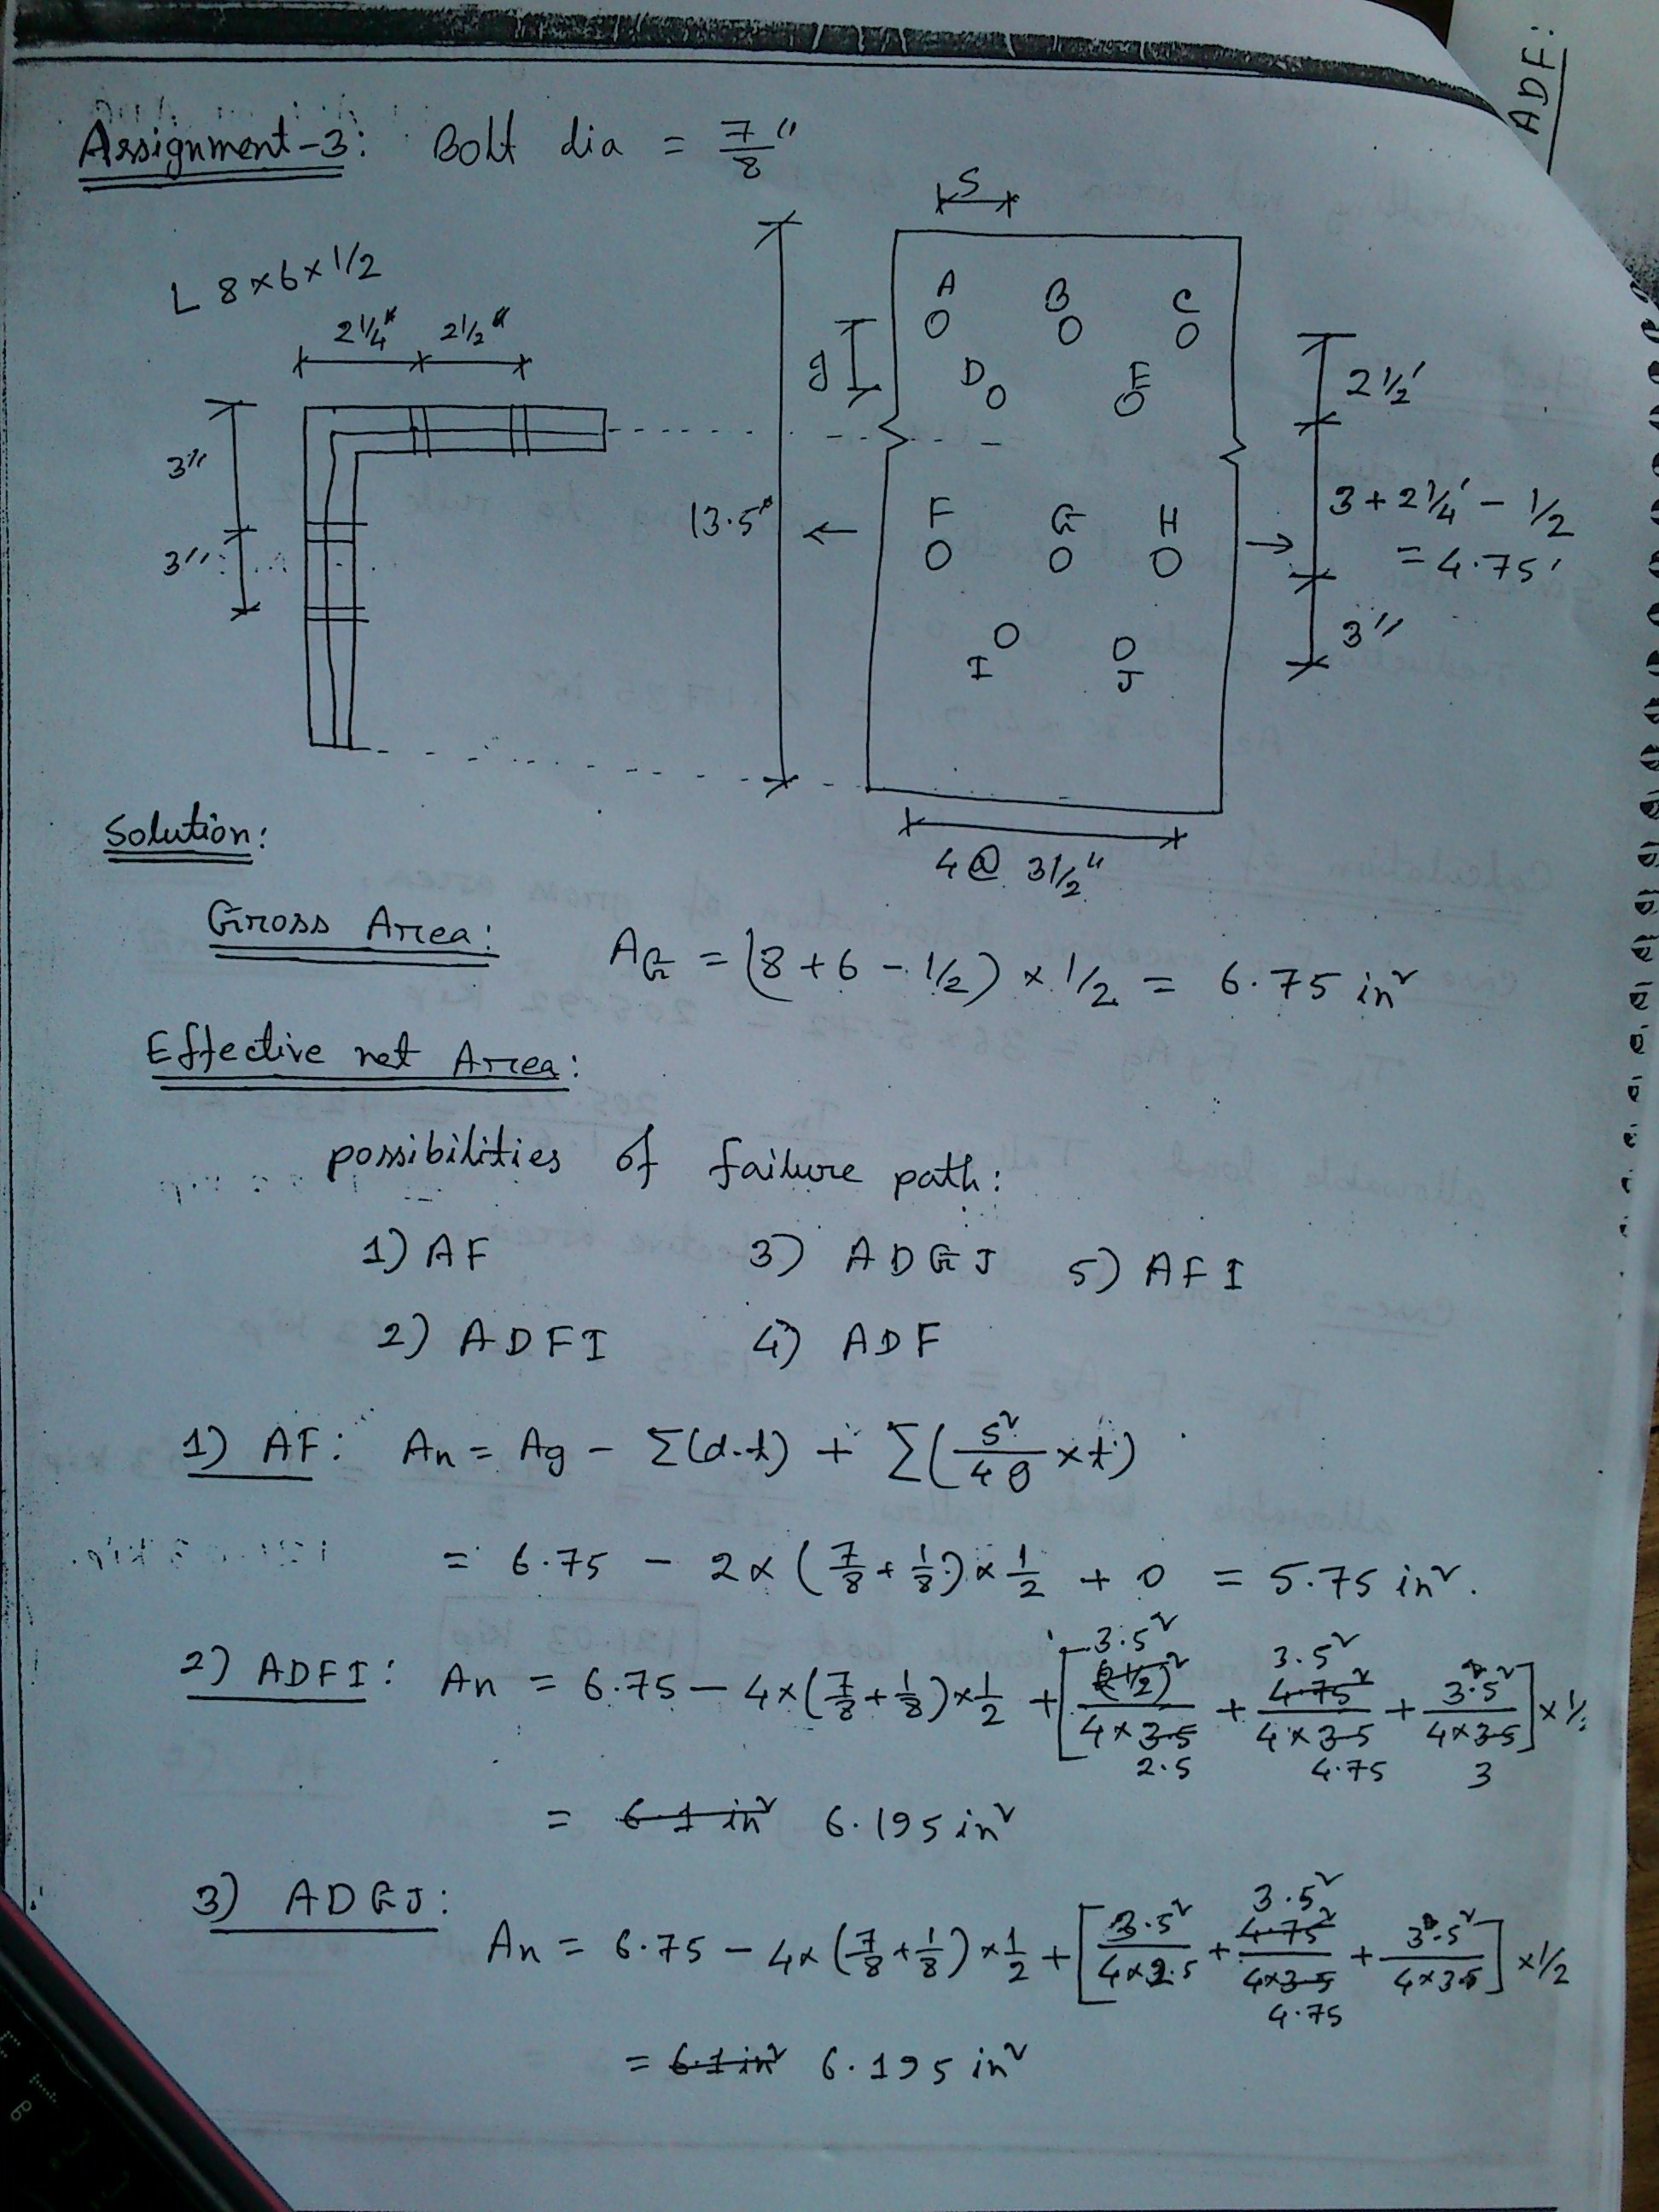 ADF:
Assignment-3: Bolt dia = 7/8"
S
L 8×6×1/2
2 1/4" 2 1/2"
3"
3"
13.5"
g
A B C
D E
F G H
I J
2 1/2'
3 + 2 1/4' - 1/2
= 4.75'
3"
4 @ 3 1/2"
Solution:
Gross Area: AG = (8 + 6 - 1/2) × 1/2 = 6.75 in²
Effective net Area:
possibilities of failure path:
1) AF 3) ADGJ 5) AFI
2) ADFI 4) ADF
1) AF: An = Ag - Σ(d.t) + Σ(s²/4g × t)
= 6.75 - 2 × (7/8 + 1/8) × 1/2 + 0 = 5.75 in².
2) ADFI: An = 6.75 - 4 × (7/8 + 1/8) × 1/2 + [3.5²/4×2.5 + 3.5²/4×4.75 + 3.5²/4×3] × 1/2
= 6.1 in² 6.195 in²
3) ADGJ:
An = 6.75 - 4 × (7/8 + 1/8) × 1/2 + [3.5²/4×2.5 + 3.5²/4×4.75 + 3.5²/4×3] × 1/2
= 6.1 in² 6.195 in²